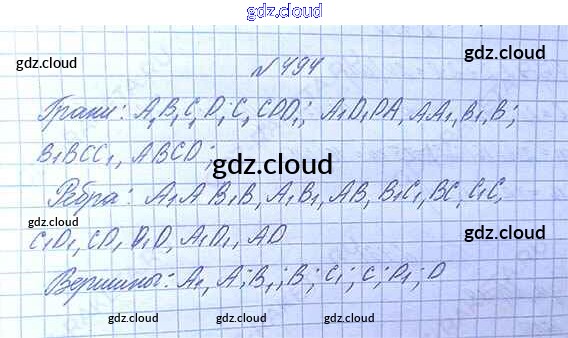 gdz.cloud
gdz.cloud gdz.cloud
№ 494
Грани: A₁B₁C₁D₁; C₁CDD₁; A₁D₁DA, AA₁, B₁, B;
B₁BCC₁, ABCD;
gdz.cloud
Ребра: A₁A, B₁B, A₁B₁, AB, B₁C₁, BC, C₁C,
gdz.cloud gdz.cloud
C₁D₁, CD, D₁D, A₁D₁, AD
Вершины: A₁, A; B₁; B; C₁; C; D₁; D
gdz.cloud gdz.cloud gdz.cloud